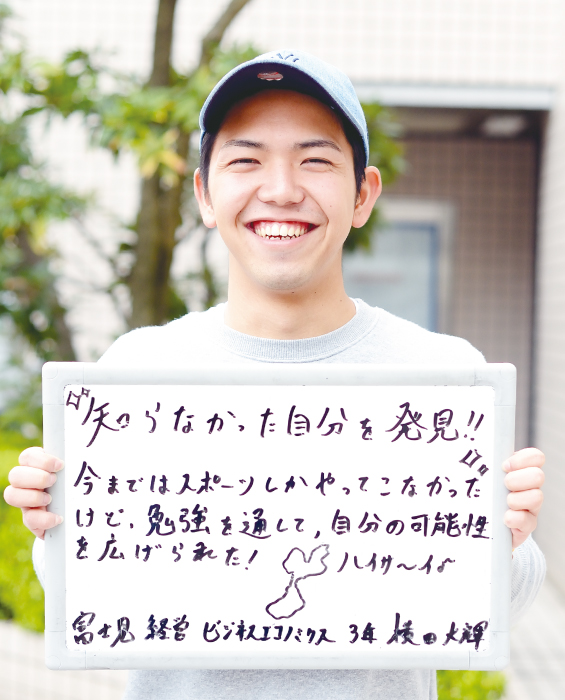 〝知らなかった自分を発見!!〟
今まではスポーツしかやってこなかった
けど、勉強を通して,自分の可能性
を広げられた!
ハイサ〜イ♪
富士見 経営 ビジネスエコノミクス 3年 横田大輝